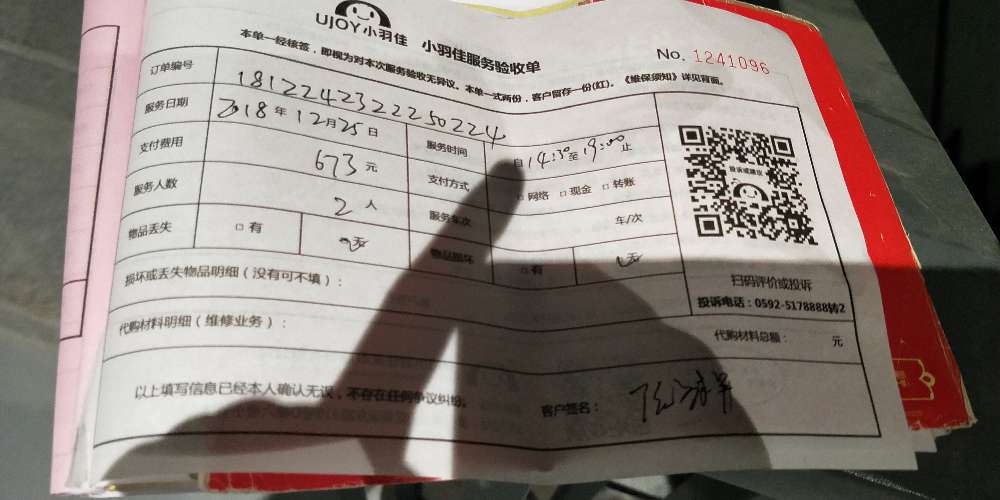 UJOY小羽佳 小羽佳服务验收单
No. 1241096
本单一经核签，即视为对本次服务验收无异议。本单一式两份，客户留存一份(红)。《维保须知》详见背面。
订单编号 18122423222250224
服务日期 2018年12月25日 服务时间 自14:30至19:00止
支付费用 673元 支付方式 □网络 □现金 □转账
服务人数 2人 服务车次 车/次
物品丢失 □有 无 物品损坏 □有 无
投诉或建议
损坏或丢失物品明细（没有可不填）：
扫码评价或投诉
投诉电话：0592-5178888转2
代购材料明细（维修业务）：
代购材料总额： 元
以上填写信息已经本人确认无误，不存在任何争议纠纷。
客户签名：